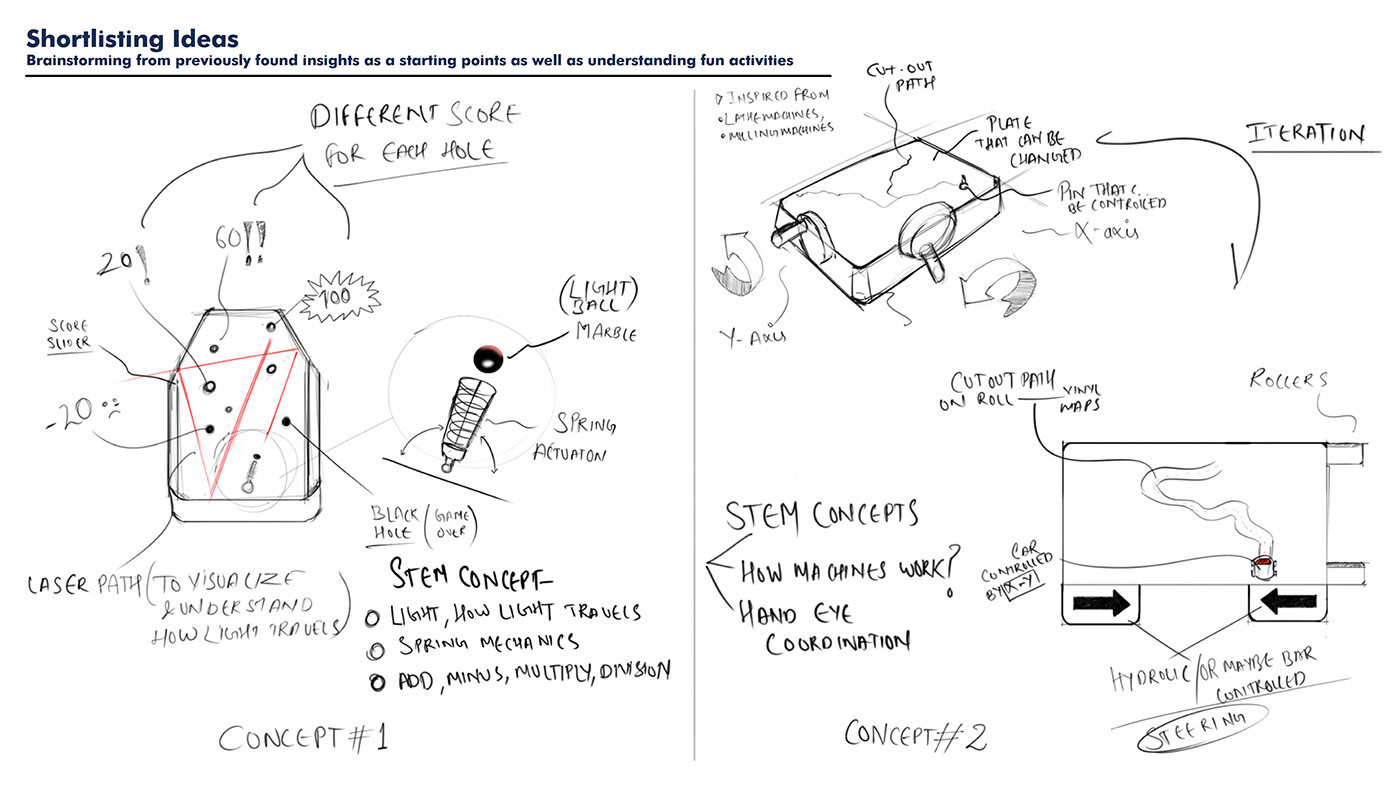 Shortlisting Ideas
Brainstorming from previously found insights as a starting points as well as understanding fun activities
DIFFERENT SCORE
FOR EACH HOLE
20!
60!!
100
SCORE
SLIDER
-20
(LIGHT)
BALL
MARBLE
SPRING
ACTUATON
BLACK
HOLE
(GAME
OVER)
LASER PATH (TO VISUALIZE
& UNDERSTAND
HOW LIGHT TRAVELS)
STEM CONCEPT
LIGHT, HOW LIGHT TRAVELS
SPRING MECHANICS
ADD, MINUS, MULTIPLY, DIVISION
CONCEPT #1
INSPIRED FROM
• LATHE MACHINES,
• MILLING MACHINES
CUT-OUT
PATH
PLATE
THAT CAN BE
CHANGED
PIN THAT C..
BE CONTROLLED
X-axis
Y-Axis
ITERATION
CUTOUT PATH
ON ROLL
VINYL
MAPS
ROLLERS
STEM CONCEPTS
HOW MACHINES WORK?
HAND EYE
COORDINATION
CAR
CONTROLLED
BY X-Y
HYDROLIC/OR MAYBE BAR
CONTROLLED
STEERING
CONCEPT #2